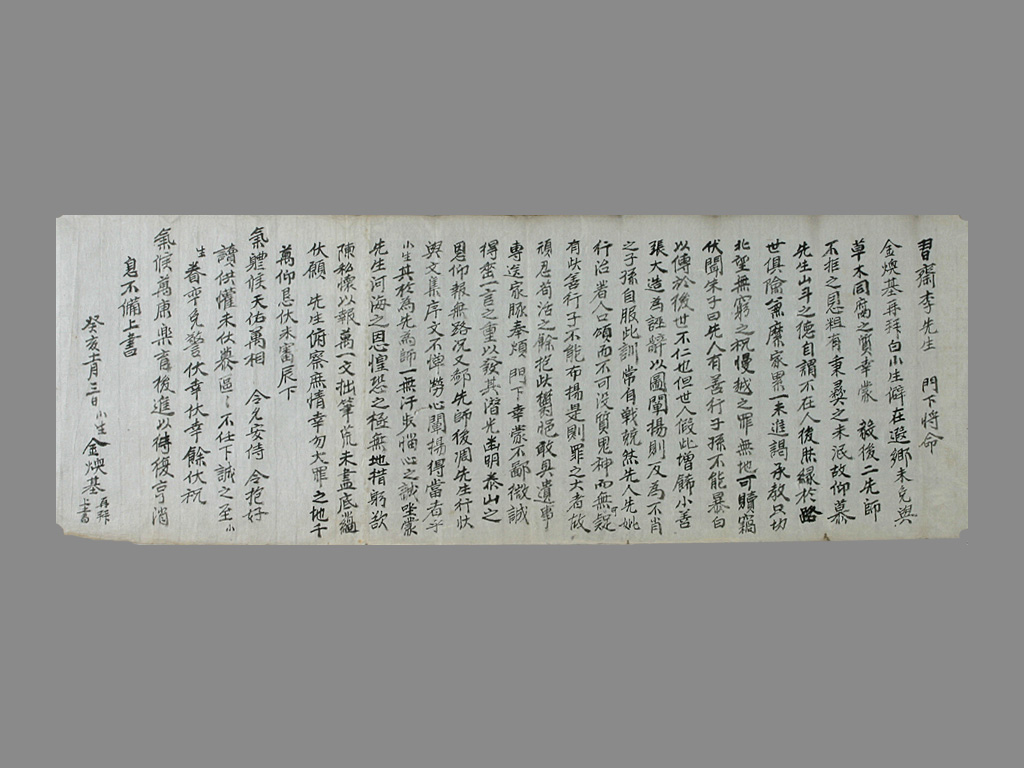 習齋李先生 門下將命
金煥基再拜白小生僻在遐鄉未免與
草木同腐之質幸蒙 毅後二先師
不拒之恩粗有秉彛之未泯故仰慕
先生山斗之德自謂不在人後然緣於路
世俱險兼縻家累一未進謁承敎只切
北望無窮之祝慢越之罪無地可贖竊
伏聞朱子曰先人有善行子孫不能暴白
以傳於後世不仁也但世人假此增飾小善
張大造爲誣辭以圖闡揚則反爲不肖
之子孫自服此訓常自戰兢然先人先妣
行治耆人口頌而不可沒質鬼神而無疑
有此善行子不能布揚是則罪之大者故
頑忍苟活之餘抱此 愧敢具遺事
專送家豚奉煩 門下幸蒙不鄙微誠
得蒙一言之重以發其潛光幽明泰山之
恩仰報無路况又鄙先師後凋先生行狀
與文集序文不憚勞心闡揚得當者乎
小生其於爲先爲師一無汗 惱心之誠坐蒙
先生河海之恩惶恐之極無地措躬欲
陳私懷以報萬一文拙筆荒未盡底蘊
伏願 先生俯察庶情幸勿大罪之地千
萬仰恳伏未審辰下
氣軆候天佑萬相 令允安侍 令抱好
讀供懽未伏慕區〻不仕下誠之至小
生眷率免警伏幸伏幸餘伏祝
氣候萬康樂育後進以待復亨消
息不備上書
癸亥十一月三日小生金煥基再拜上書